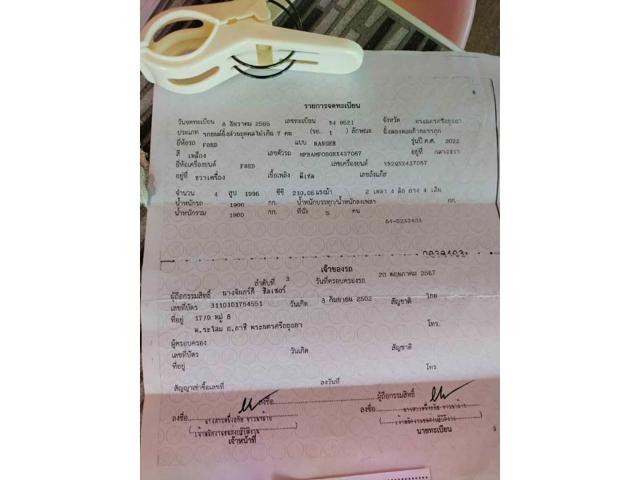 รายการจดทะเบียน
วันจดทะเบียน 8 ธันวาคม 2565 เลขทะเบียน 9621 จังหวัด พระนครศรีอยุธยา
ประเภท รถยนต์นั่งส่วนบุคคลไม่เกิน 7 คน (รย. 1 ) ลักษณะ นั่งสองตอนท้ายบรรทุก
ยี่ห้อรถ FORD แบบ RANGER รุ่นปี ค.ศ. 2022
สี เหลือง เลขตัวรถ อยู่ที่
ยี่ห้อเครื่องยนต์ FORD เลขเครื่องยนต์
อยู่ที่ ขวาเครื่อง เชื้อเพลิง ดีเซล เลขถังแก๊ส
จำนวน 4 สูบ 1996 ซีซี 210.06 แรงม้า 2 เพลา 4 ล้อ ยาง 4 เส้น
น้ำหนักรถ 1900 กก. น้ำหนักบรรทุก/น้ำหนักลงเพลา กก.
น้ำหนักรวม 1900 กก. ที่นั่ง 5 คน
เจ้าของรถ
ลำดับที่ 3 วันที่ครอบครองรถ 20 พฤษภาคม 2567
ผู้ถือกรรมสิทธิ์
เลขที่บัตร 3110101754551 วันเกิด 8 กันยายน 2502 สัญชาติ ไทย
ที่อยู่ 17/9 หมู่ 8 โทร.
ต.ระโสม อ.ภาชี พระนครศรีอยุธยา
ผู้ครอบครอง
เลขที่บัตร วันเกิด สัญชาติ
ที่อยู่ โทร.
สัญญาเช่าซื้อเลขที่ ลงวันที่ ผู้ถือกรรมสิทธิ์
ลงชื่อ
ลงชื่อ ลงชื่อ
เจ้าหน้าที่ นายทะเบียน